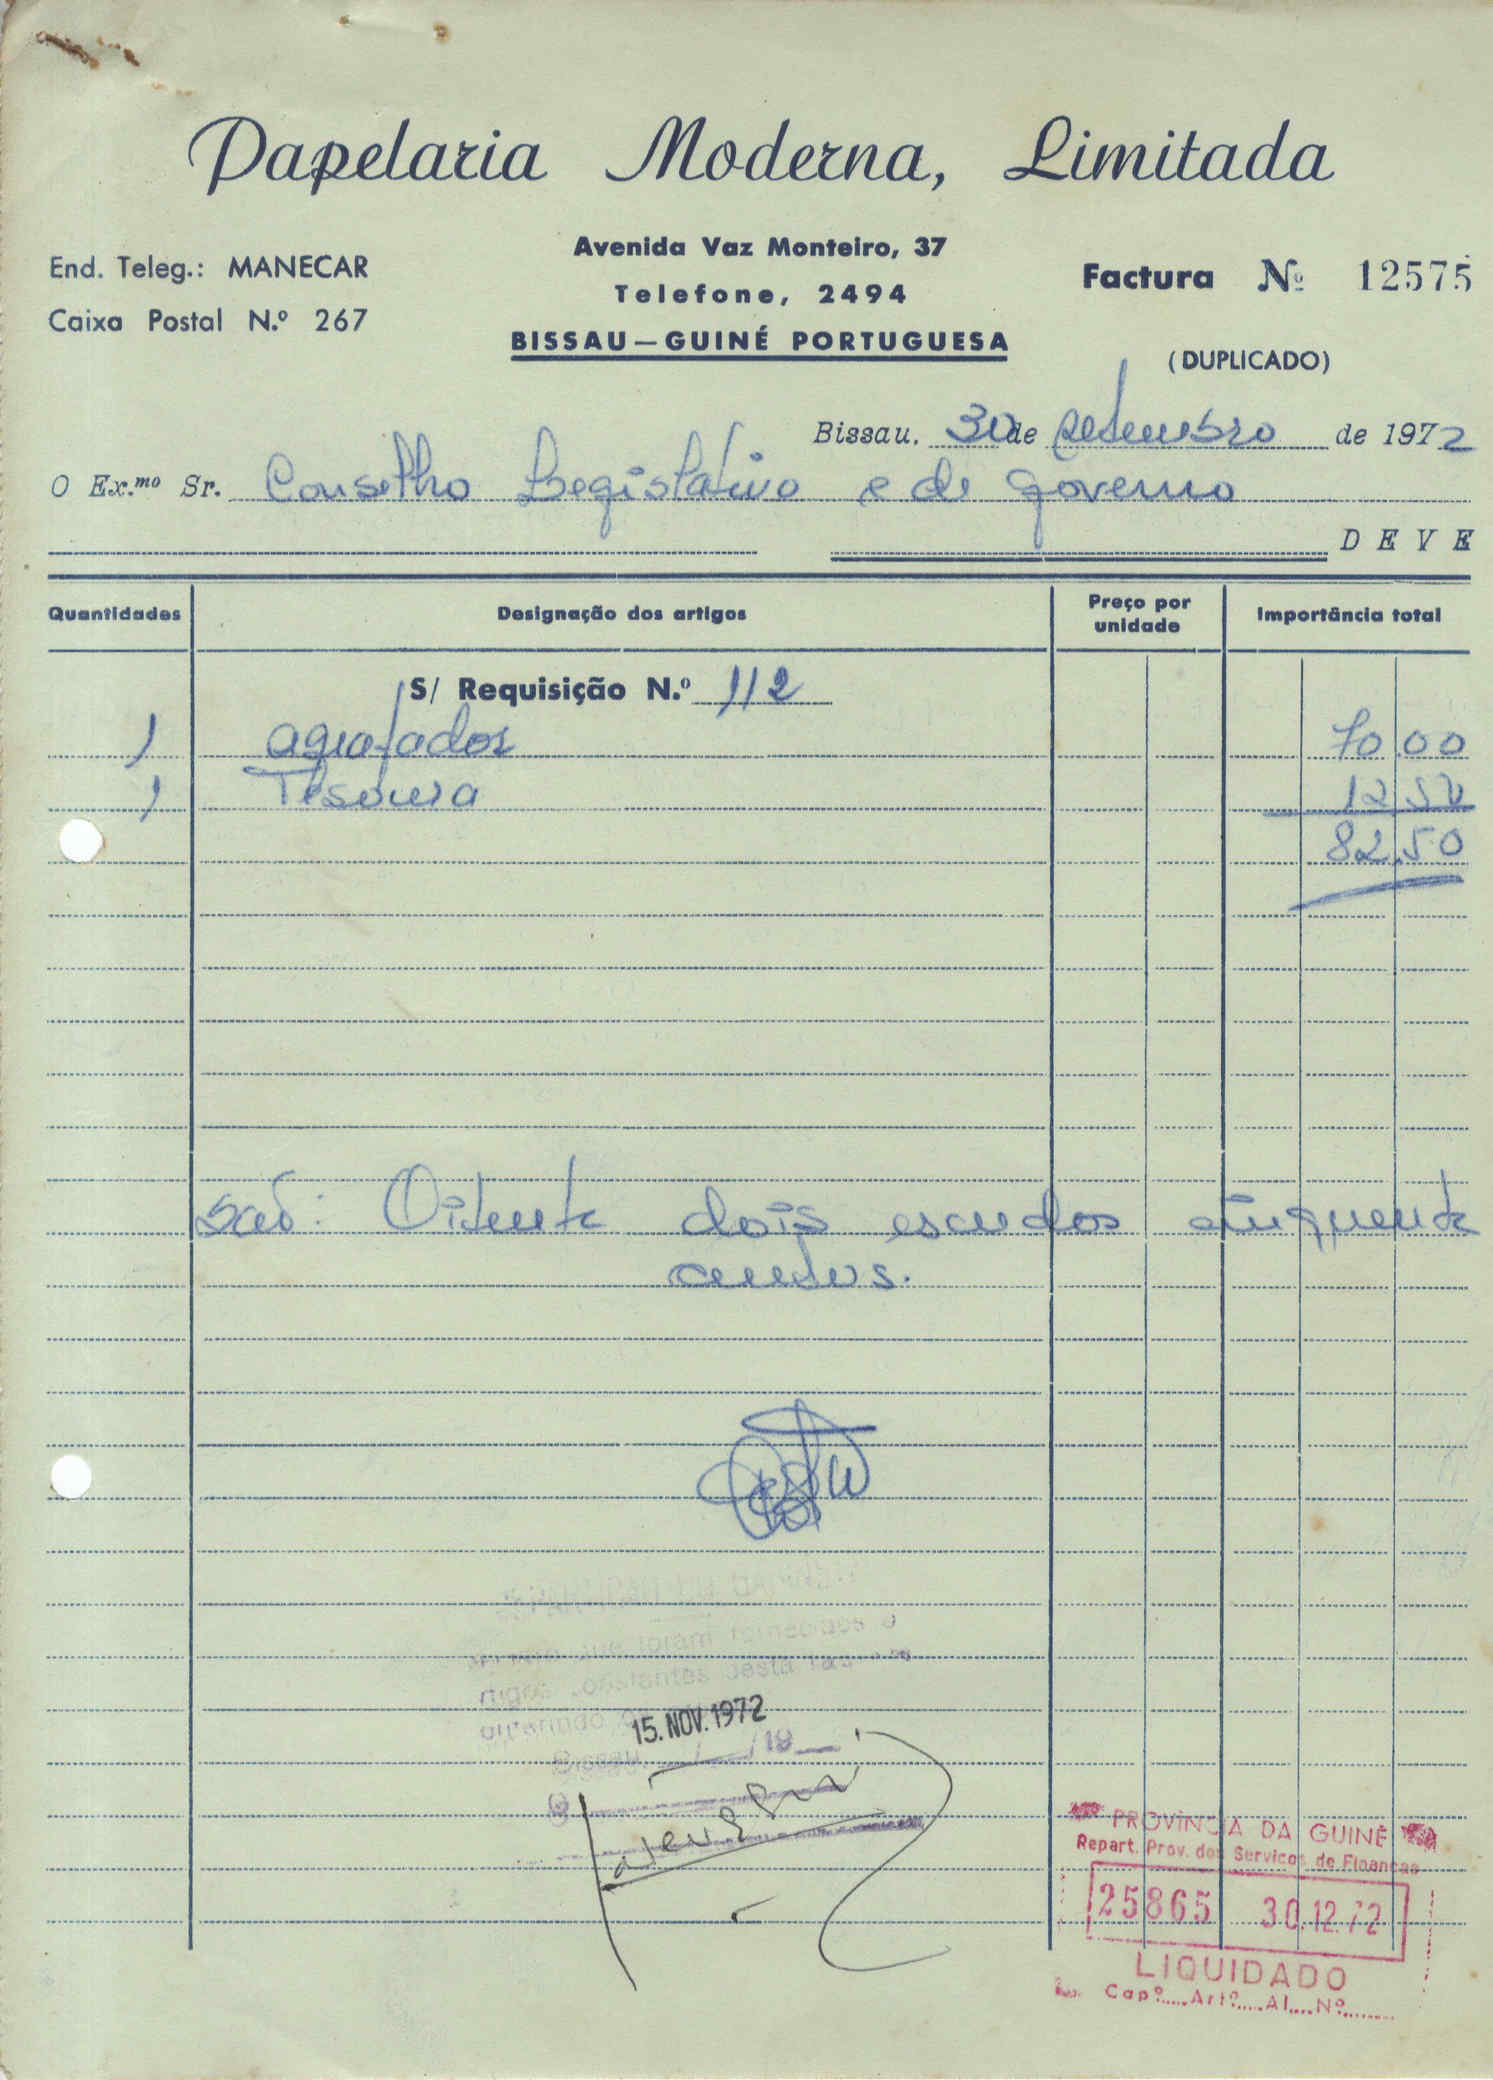 Papelaria Moderna, Limitada
Avenida Vaz Monteiro, 37
End. Teleg.: MANECAR
Telefone, 2494
Factura Nº 12575
Caixa Postal N.º 267
BISSAU — GUINÉ PORTUGUESA
(DUPLICADO)
Bissau, 30 de setembro de 1972
O Ex.mo Sr. Conselho Legislativo e de Governo
DEVE
Quantidades Designação dos artigos Preço por unidade Importância total
S/ Requisição N.º 112
1 agrafador 70.00
1 Tesoura 12.50
82.50
São: Oitenta dois escudos cinquenta
centvs.
que foram fornecidos o
constantes desta
15. NOV. 1972
Bissau, / /19
PROVÍNCIA DA GUINÉ
Repart. Prov. dos Servicos de Financas
25865 30.12.72
LIQUIDADO
Capº.....Artº.....Al....Nº........